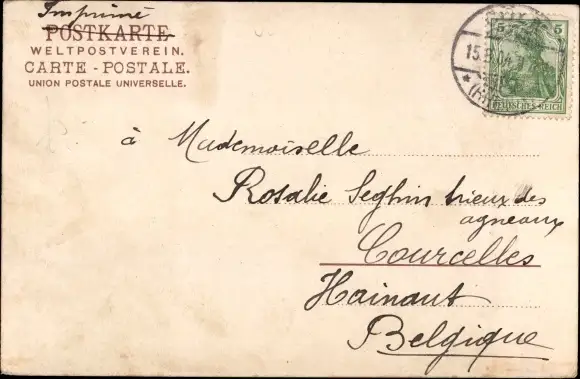 Imprimé
POSTKARTE
WELTPOSTVEREIN.
CARTE - POSTALE.
UNION POSTALE UNIVERSELLE.
5 5
DEUTSCHES REICH
15.
à Mademoiselle
Rosalie Seghin trieux des
agneaux
Courcelles
Hainaut
Belgique